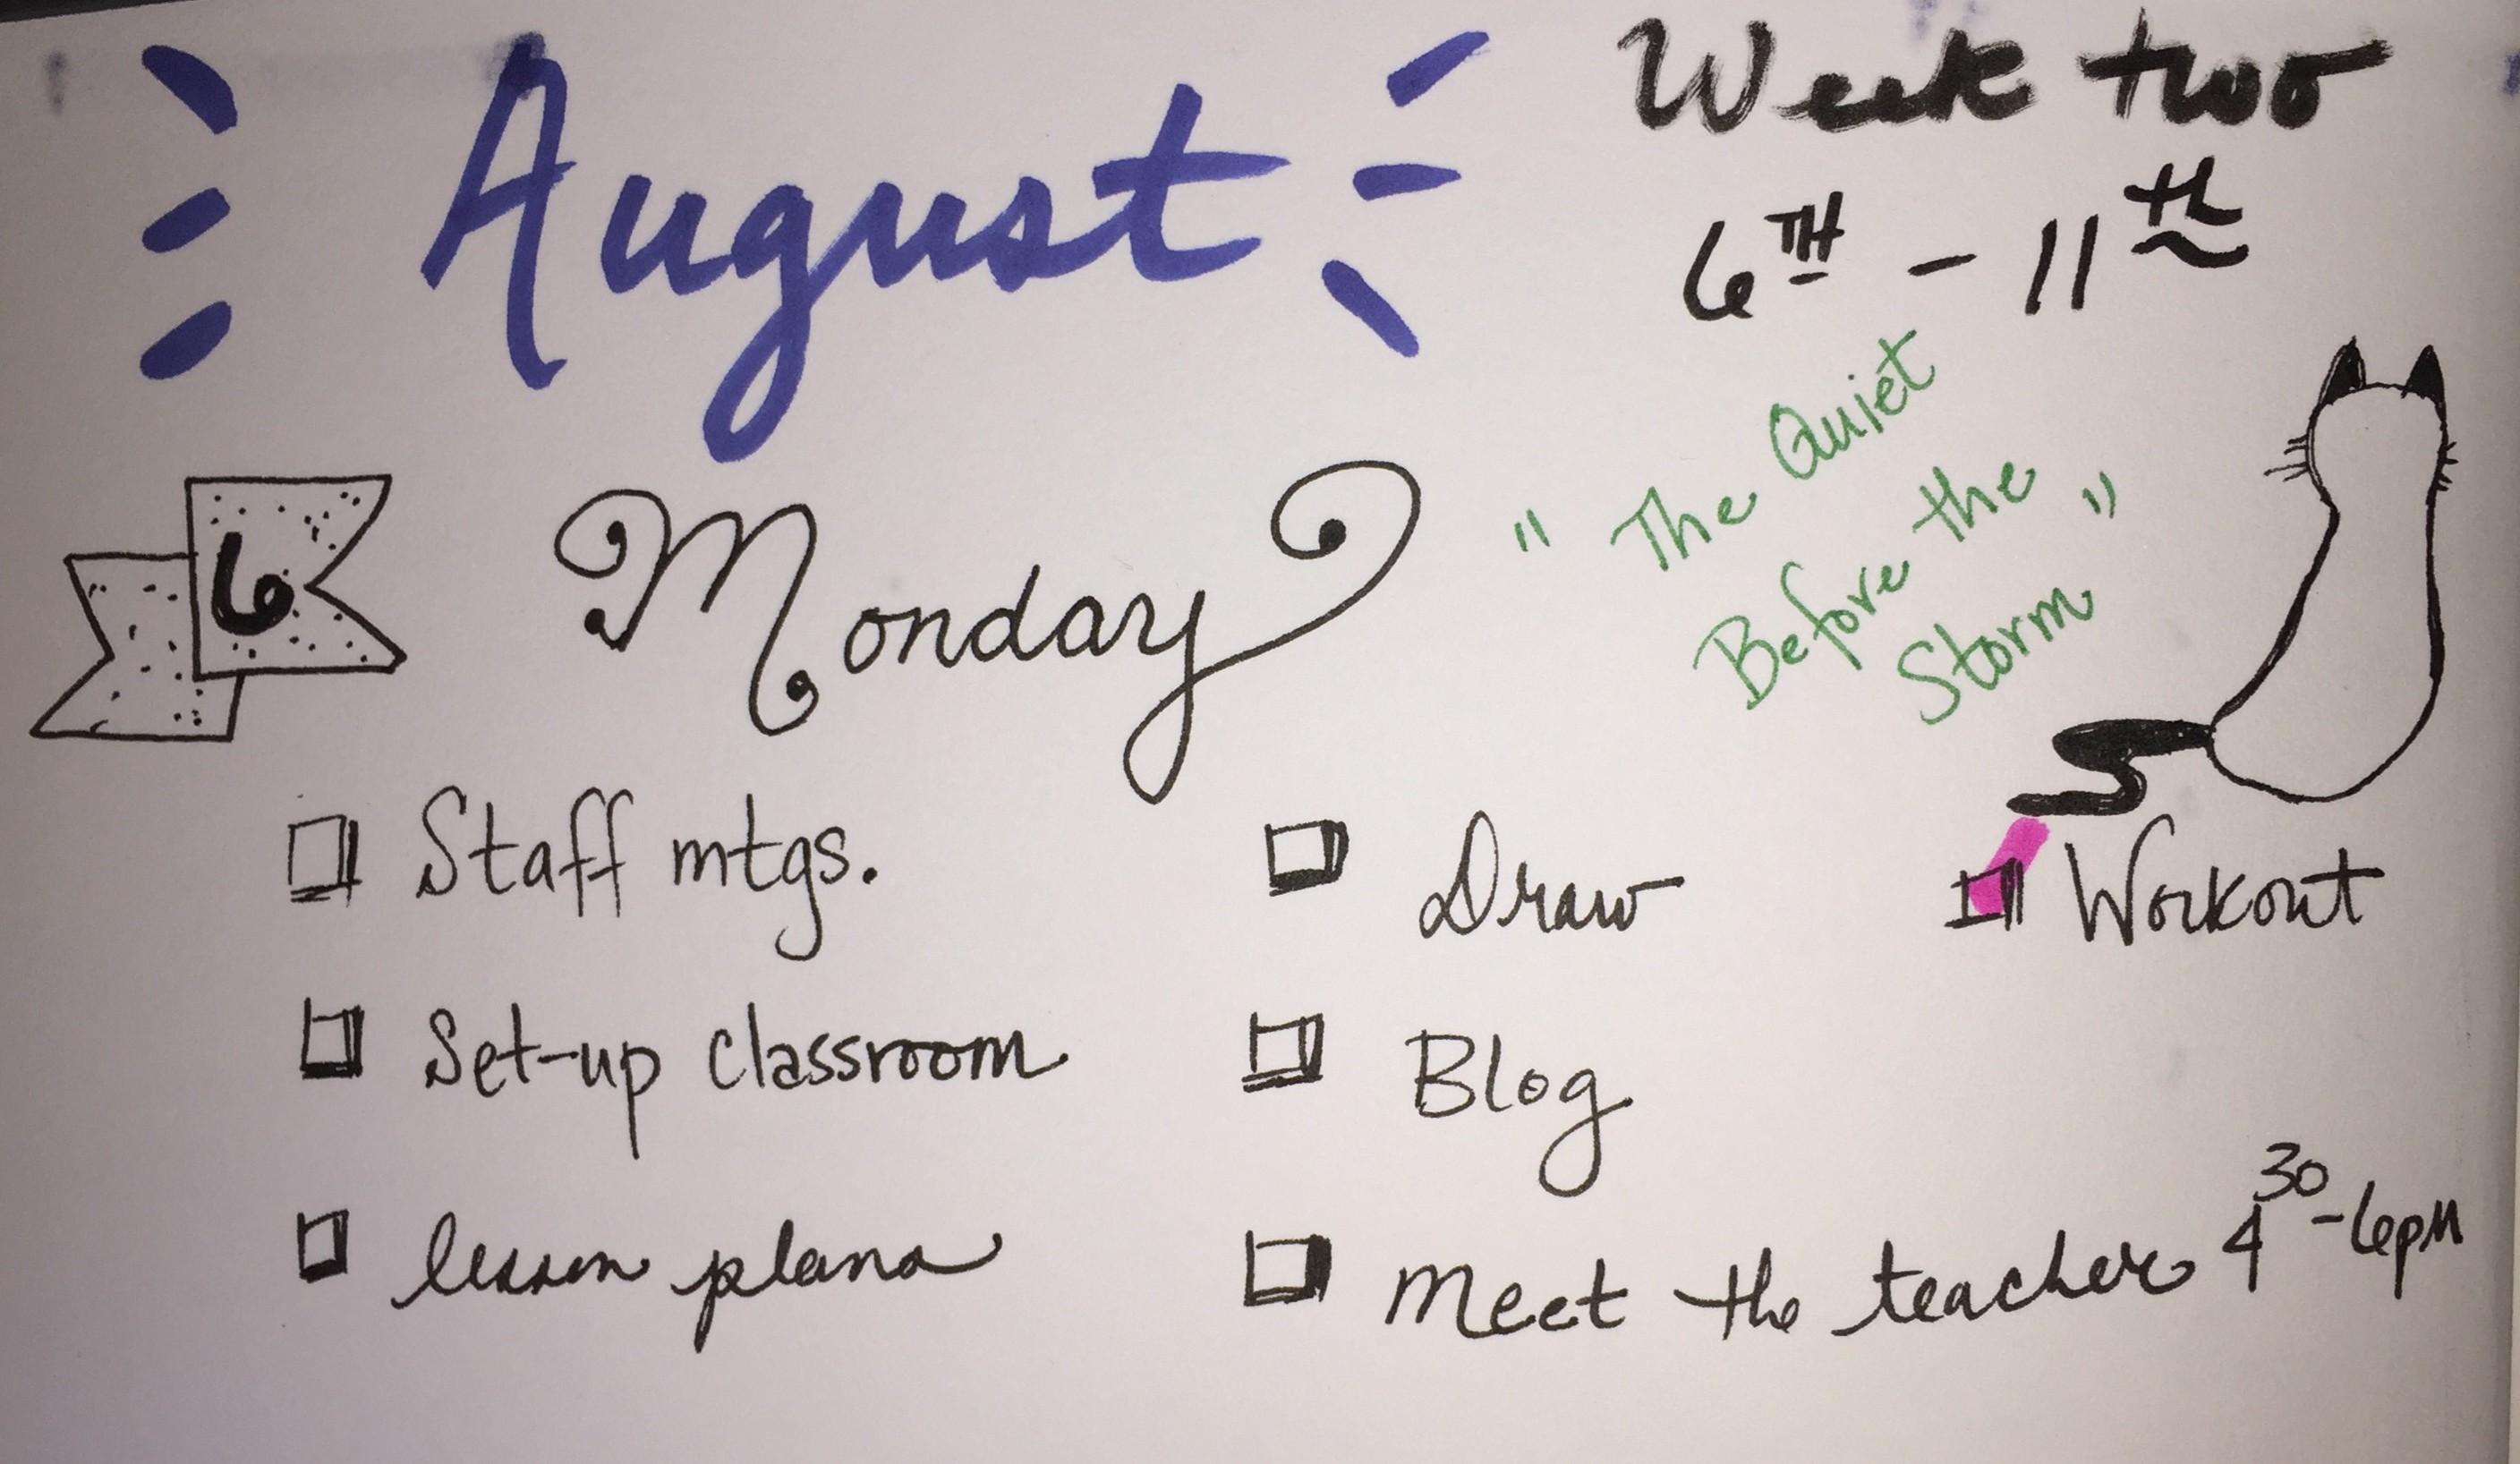 August
Week two
6TH - 11th
"The Quiet
Before the"
Storm
6
Monday
Staff mtgs.
Draw
Workout
Set-up classroom
Blog
lesson plans
Meet the teacher 4 30 - 6pm